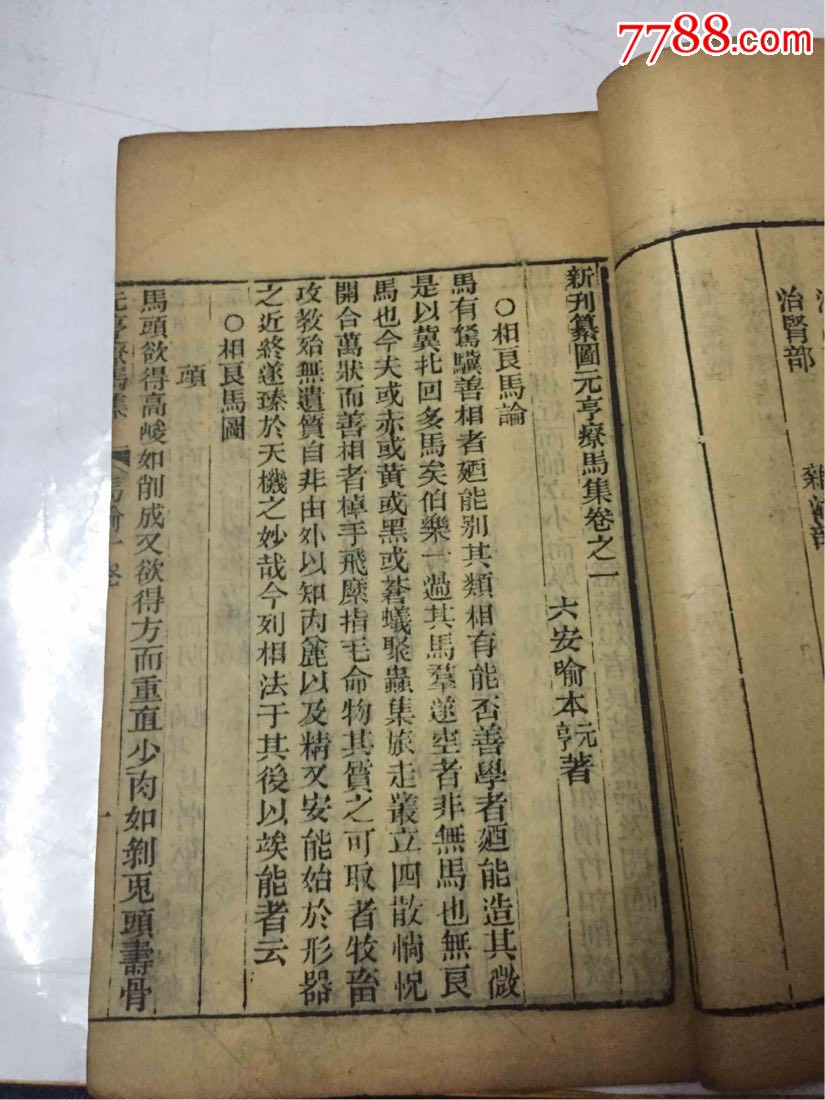 7788.com
治腎部
新刊纂圖元亨療馬集卷之一
六安喻本元亨著
○相良馬論
馬有駑驥善相者廼能別其類相有能否善學者廼能造其微
是以冀北回多馬矣伯樂一過其馬羣遂空者非無馬也無良
馬也今夫或赤或黃或黑或蒼蟻聚蟲集旅走叢立四散惝怳
開合萬狀而善相者棹手飛縻指毛命物其質之可取者牧畜
攻教始無遺質自非由外以知內麄以及精又安能始於形器
之近終遂臻於天機之妙哉今列相法于其後以竢能者云
○相良馬圖
頭
馬頭欲得高峻如削成又欲得方而重直少肉如剝兎頭壽骨
元亨療馬集
一